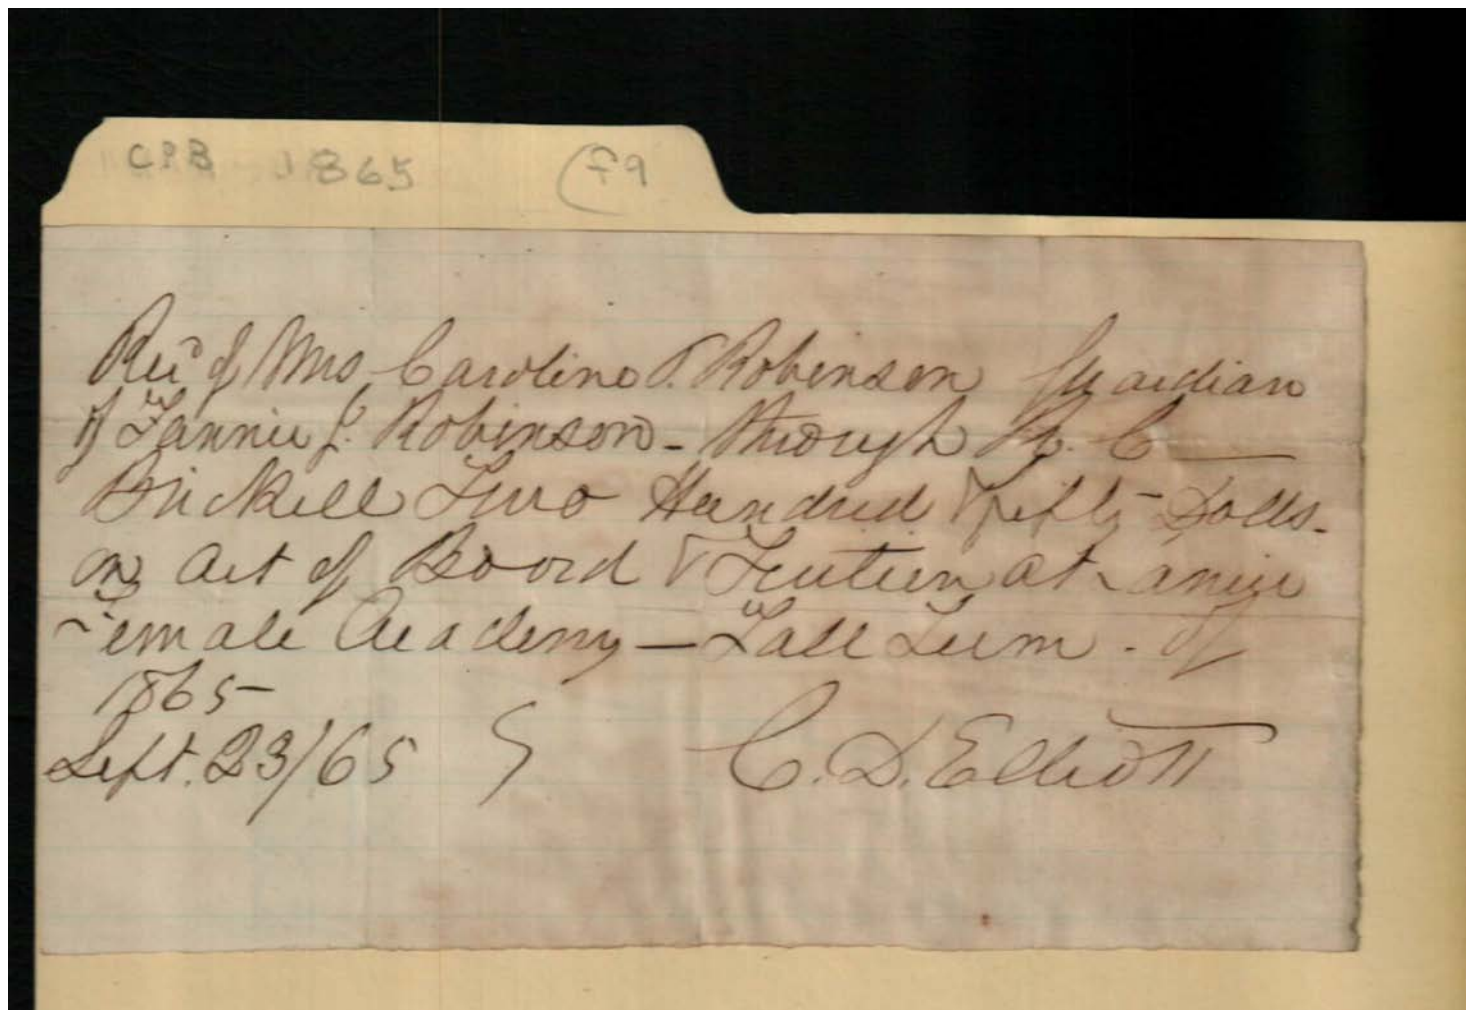 CPB 1865 (F9
Rec'd of Mrs Caroline Robinson Guardian
of Fannie J. Robinson - through R. C.
Brickell Two Hundred & fifty Dolls.
on Act of Board & Tuition at
Female Academy - Fall Term. of
1865
Sept. 23/65 C. D. Elliott